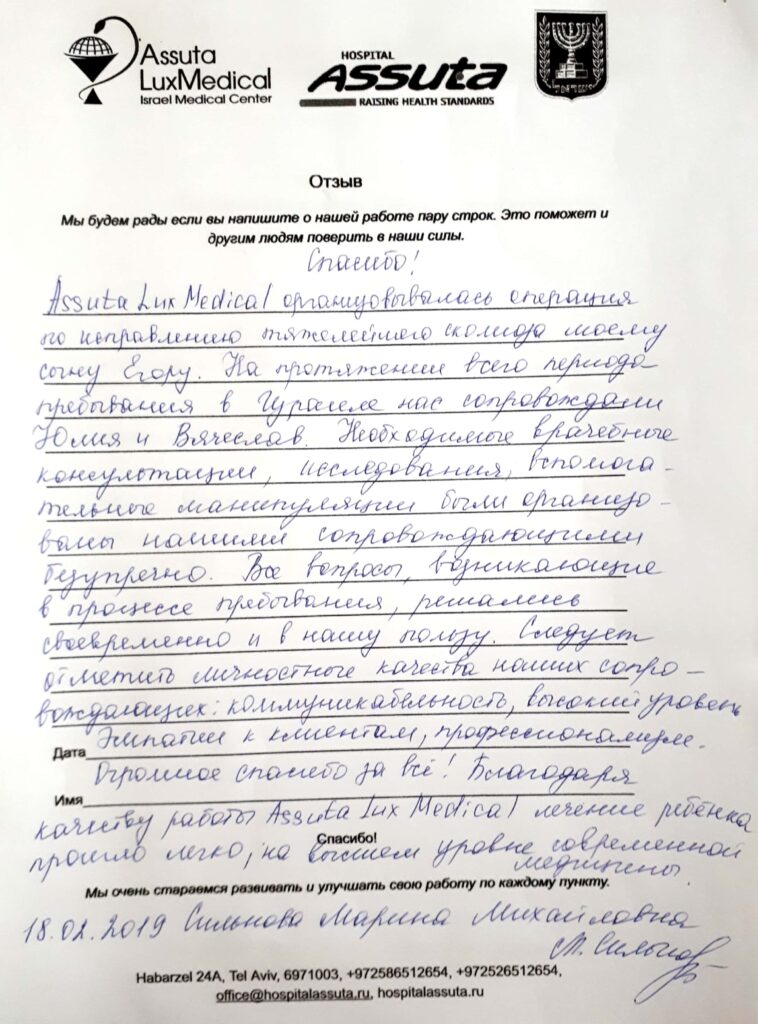 Assuta
LuxMedical
Israel Medical Center
HOSPITAL
ASSUTA
RAISING HEALTH STANDARDS
ישראל
Отзыв
Мы будем рады если вы напишите о нашей работе пару строк. Это поможет и
другим людям поверить в наши силы.
Спасибо!
Assuta Lux Medical организовывалась операция
по исправлению тяжелейшего сколиоза моему
сыну Егору. На протяжении всего периода
пребывания в Израиле нас сопровождали
Юлия и Вячеслав. Необходимые врачебные
консультации, исследования, вспомога-
тельные манипуляции были организо-
ваны нашими сопровождающими
безупречно. Все вопросы, возникающие
в процессе пребывания, решались
своевременно и в нашу пользу. Следует
отметить личностные качества наших сопро-
вождающих: коммуникабельность, высокий уровень
Дата эмпатии к клиентам, профессионализм.
Огромное спасибо за всё! Благодаря
Имя
качеству работы Assuta Lux Medical лечение ребёнка
Спасибо!
прошло легко, на высшем уровне современной
медицины.
Мы очень стараемся развивать и улучшать свою работу по каждому пункту.
18.02.2019 Сильнова Марина Михайловна
М. Сильнов
Habarzel 24A, Tel Aviv, 6971003, +972586512654, +972526512654,
office@hospitalassuta.ru, hospitalassuta.ru